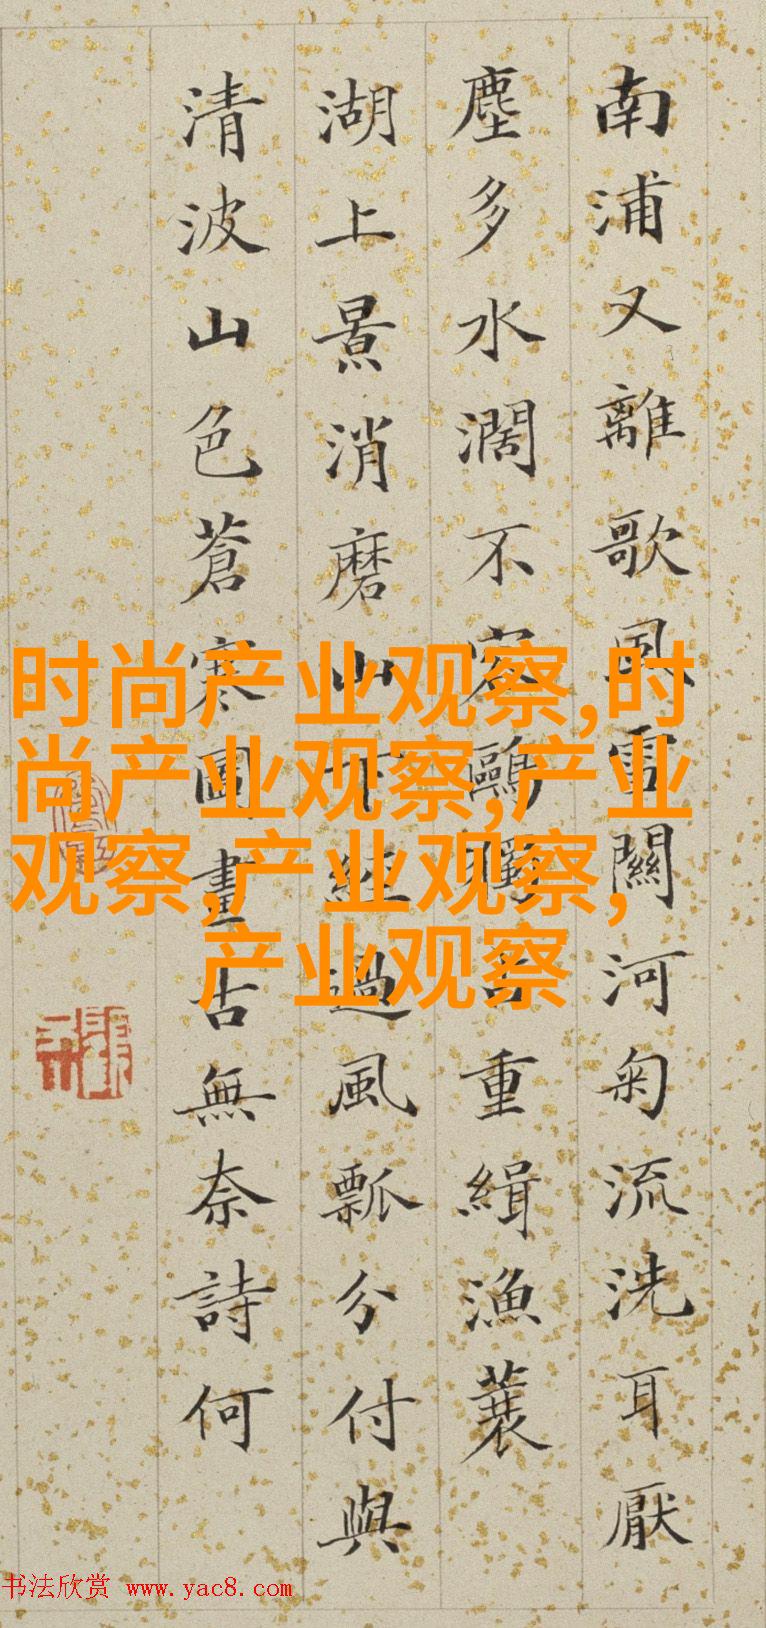 南浦又離歌風雪關河匊流洗耳厭
塵多水濶不容鷗獨占重緝漁蓑
湖上景消磨山下經過風瓢分付與
清波山色蒼寒圖畫古無奈詩何
时尚产业观察,时
尚产业观察,产业
观察,产业观察,
产业观察
书法欣赏 www.yac8.com